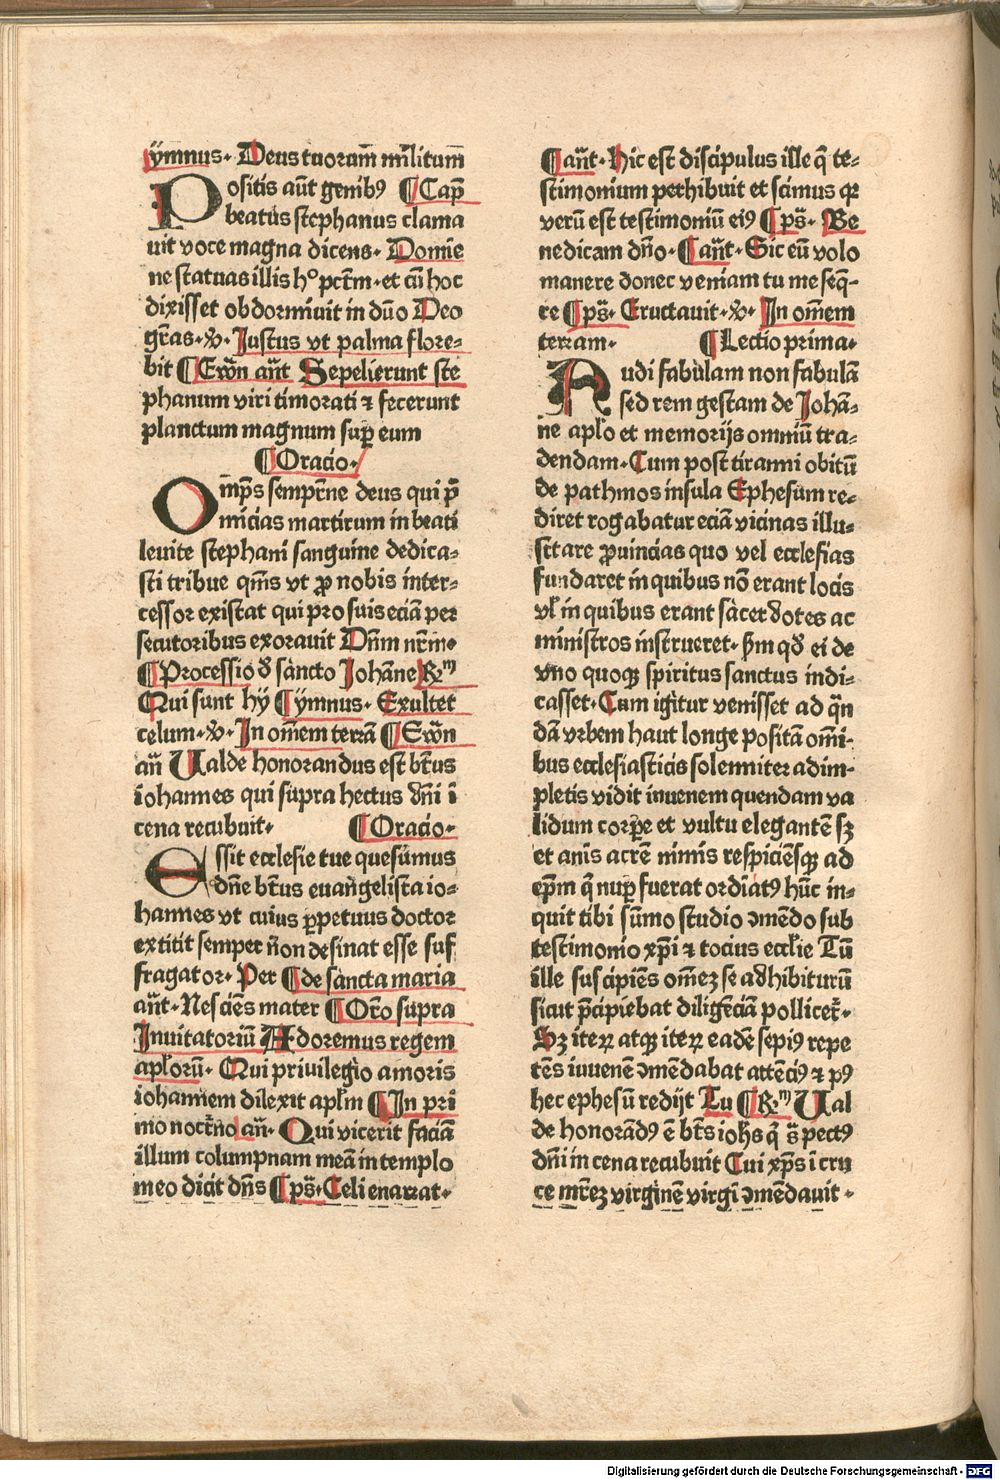 ymnus· Deus tuorum̄ ml̄itum̄
Positis aūt genibꝰ ¶ Cap̄
beatus stephanus clama
uit voce magna dicens· Domīe
ne statuas illis h° pctm̄· et cū hoc
dixisset obdormiuit in dūo Deo
gr̄as·
Iustus vt palma flore⸗
bit ¶ aūt Sepelierunt ste
phanum viri timorati ⁊ fecerunt
planctum magnum suꝑ eum
¶ Oracio·
Omp̄s sempr̄ne deus qui p̄
micias martirum in beati
leuite stephani sanguine dedica⸗
sti tribue qm̄s vt ꝓ nobis inter⸗
cessor existat qui pro suis eciā per
secutoribus exorauit Dn̄m nr̄m·
¶ Processio ď sancto Johāne
Qui sunt hÿ ¶ ymnus· Exultet
celum· In om̄em terrā ¶
an̄ Ualde honorandus est bt̄us
iohannes qui supra hectus dn̄i ī
cena recubuit· ¶ Oracio·
Essit ecclesie tue quesūmus
dn̄e bt̄us euangelista io⸗
hannes vt cuius ꝑpetuus doctor
extitit semper non desinat esse suf
fragator· Per ¶ de sancta maria
an̄t· Nesciēs mater ¶ Or̄o supra
Inuitatoriū Adoremus regem
apl̄orū· Qui priuilegio amoris
iohannem dilexit apl̄m ¶ In pri
mo noctr̄no an̄· Qui vicerit faciā
illum columpnam meā in templo
meo dicit dn̄s ¶ ps̄· Celi enarrat·
¶ an̄t· Hic est discipulus ille q̄ te⸗
stimonium perhibuit et scimus qꝛ
verū est testimoniū eiꝰ ¶ ps̄· Be
nedicam dn̄o· ¶ an̄t· Sic eū volo
manere donec veniam tu me seq̄⸗
re ¶ ps̄· Eructauit· In om̄em
terram· ¶ Lectio prima·
Audi fabulam non fabulā
sed rem gestam de Johā⸗
ne apl̄o et memorijs omniū tra⸗
dendam· Cum post tiranni obitū
de pathmos insula Ephesum re⸗
diret rogabatur eciā vicinas illu⸗
strare ꝓuincias quo vel ecclesias
fundaret in quibus nō erant locis
vl̄ in quibus erant sacerdotes ac
ministros instrueret· sm̄ qď ei de
vno quoqꝫ spiritus sanctus indi⸗
casset· Cum igitur venisset ad q̄n
dā vrbem haut longe positā omī⸗
bus ecclesiasticis solenniter adim⸗
pletis vidit iuuenem quendam va
lidum corꝑe et vultu elegantē sꝫ
et anīs acrē nimis respiciēsqꝫ ad
ep̄m q̄ nuꝑ fuerat ordīatꝰ hūc in⸗
quit tibi sūmo studio ɔmēdo sub
testimonio xp̄i ⁊ tocius eccl̄ie Tū
ille suscipiēs omēꝫ se adhibiturū
sicut p̄cipiebat diligēciā pollicet̄·
Sꝫ iteꝝ atqꝫ iteꝝ eadē sepiꝰ repe
tēs iuuenē ɔmēdabat attēciꝰ ⁊ pꝰ
hec ephesū redijt Tu ¶ Ual
de honorādꝰ ē bt̄s ioh̄s q̄ s̄ pectꝰ
dn̄i in cena recubuit Cui xp̄s ī cru
ce mr̄eꝫ virginē virgī ɔmēdauit·
Digitalisierung gefördert durch die Deutsche Forschungsgemeinschaft - DFG